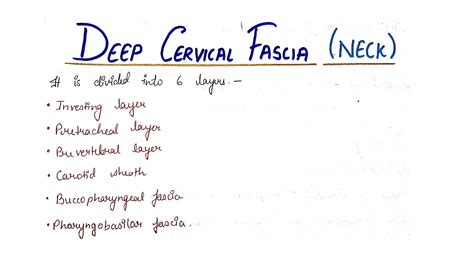 DEEP CERVICAL FASCIA (NECK)
It is divided into 6 layers.—
• Investing layer
• Pretracheal layer
• Prevertebral layer
• Carotid sheath
• Buccopharyngeal fascia
• Pharyngobasilar fascia.